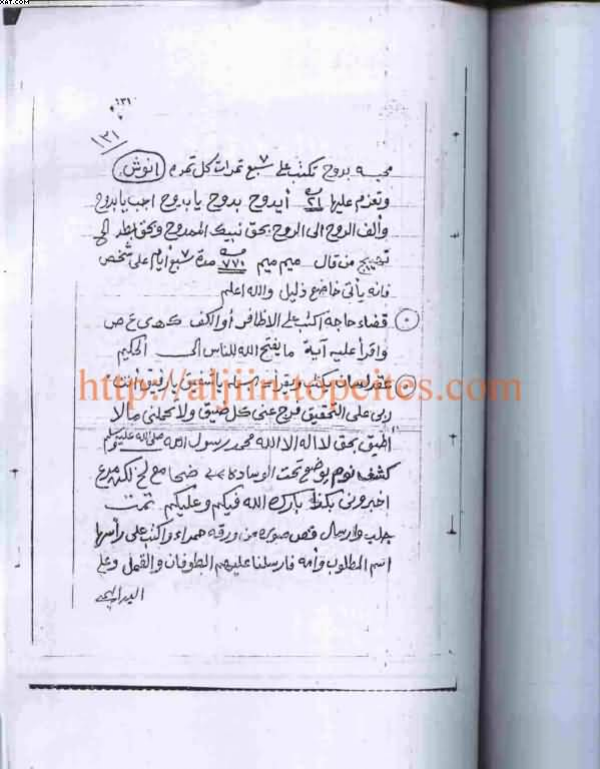 ١٣١
١٢١
محبه بدوح تكتب على ٧ سبع تمرات كل تمره انوش
وتعزم عليها ٢١ أيدوح بدوح يا بدوح اجب يا بدوح
وألف الروح الى الروح بحق نبيك الممدوح وبحق
من قال ميم ميم ٧٧٠ مرة مدة ٧ سبع أيام على شخص
فانه يأتى خاضع ذليل والله اعلم
قضاء حاجة اكتب على الاظافر أو الكف كهى ع ص
واقرأ عليه آية ما يفتح الله للناس الى الحكيم
عقد لسان يكتب ويقرأ يا شفيق يا رفيق انت
ربى على التحقيق فرج عنى كل ضيق ولا تحملنى مالا
اطيق بحق لا اله الا الله محمد رسول الله صلى الله عليه وسلم
كشف نوم يوضع تحت الوسادة
اخبرونى بكذا بارك الله فيكم وعليكم تمت
جلب وارسال قص صوره من ورقه حمراء واكتب على رأسها
اسم المطلوب وأمه فارسلنا عليهم الطوفان والقمل وعلى
اليد
http://aljiin.topcites.com